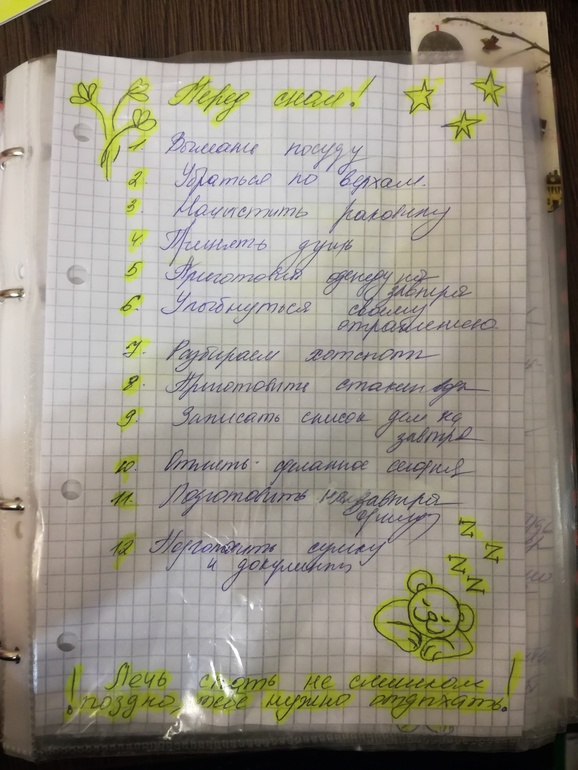 Перед сном!
1. Вымыть посуду
2. Убраться по верхам.
3. Начистить раковину
4 Принять душ
5 Приготовил одежду на
завтра
6. Улыбнуться своему
отражению.
7. Разбираем хотспоты
8. Приготовить стакан воды
9. Записать список дел на
завтра
10. Отметь сделанное сегодня
11. Подготовить на завтра
12 Подготовить сумку
и документы
Z Z
Z Z
! Лечь спать не слишком
поздно, тебе нужно отдыхать!